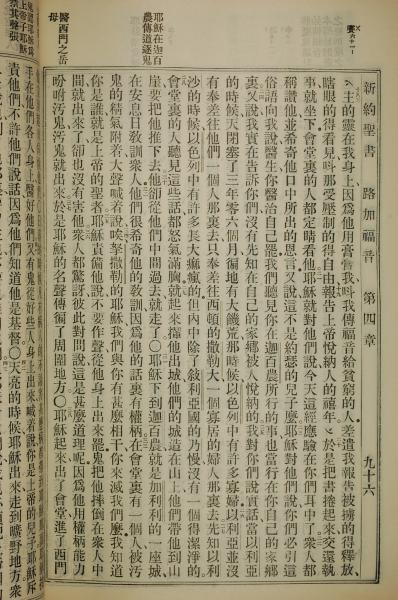 新約聖書 路加福音 第四章 九十六
主的靈在我身上因爲他用膏膏我呌我傳福音給貧窮的人差遣我報告被擄的得釋放
瞎眼的得看見呌那受壓制的得自由報告上帝悅納人的禧年於是把書捲起來交還執
事就坐下會堂裏的人都定睛看他耶穌就對他們說今天這經應驗在你們耳中了衆人都
稱讚他並希奇他口中所出的恩言又說這不是約瑟的兒子麼耶穌對他們說你們必引這
俗語向我說醫生你醫治自己罷我們聽見你在迦百農所行的事也當行在你自己的家鄉
裏又說我實在告訴你們沒有先知在自己的家鄉被人悅納的我對你們說實話當以利亞
的時候天閉塞了三年零六個月徧地有大饑荒那時候以色列中有許多寡婦以利亞並沒
有奉差往他們一個人那裏去只奉差往西頓的撒勒大一個寡居的婦人那裏去先知以利
沙的時候以色列中有許多長大痲瘋的但內中除了敘利亞國的乃慢沒有一個得潔淨的
會堂裏的人聽見這些話都怒氣滿胸就起來攆他出城他們的城造在山上他們帶他到山
崖要把他推下去他卻從他們中間過去就走了〇耶穌下到迦百農就是加利利的一座城
在安息日敎訓衆人他們很希奇他的敎訓因爲他的話裏有權柄在會堂裏有一個人被污
鬼的精氣附着大聲喊着說唉拿撒勒的耶穌我們與你有甚麼相干你來滅我們麼我知道
你是誰就是上帝的聖者耶穌責備他說不要作聲從他身上出來罷鬼把他摔倒在衆人中
間就出來了卻也沒有害他衆人都驚訝彼此對問說這是甚麼道理呢因爲他用權柄能力
吩咐污鬼污鬼就出來於是耶穌的名聲傳徧了周圍地方〇耶穌起來出了會堂進了西門
手在他們各人身上醫好他們又有鬼從好些人身上出來喊着說你是上帝的兒子耶穌斥
責他們不許他們說話因爲他們知道他是基督〇天亮的時候耶穌出來走到曠野地方衆
耶穌在迦百
農傳道逐鬼
醫西門之岳
母